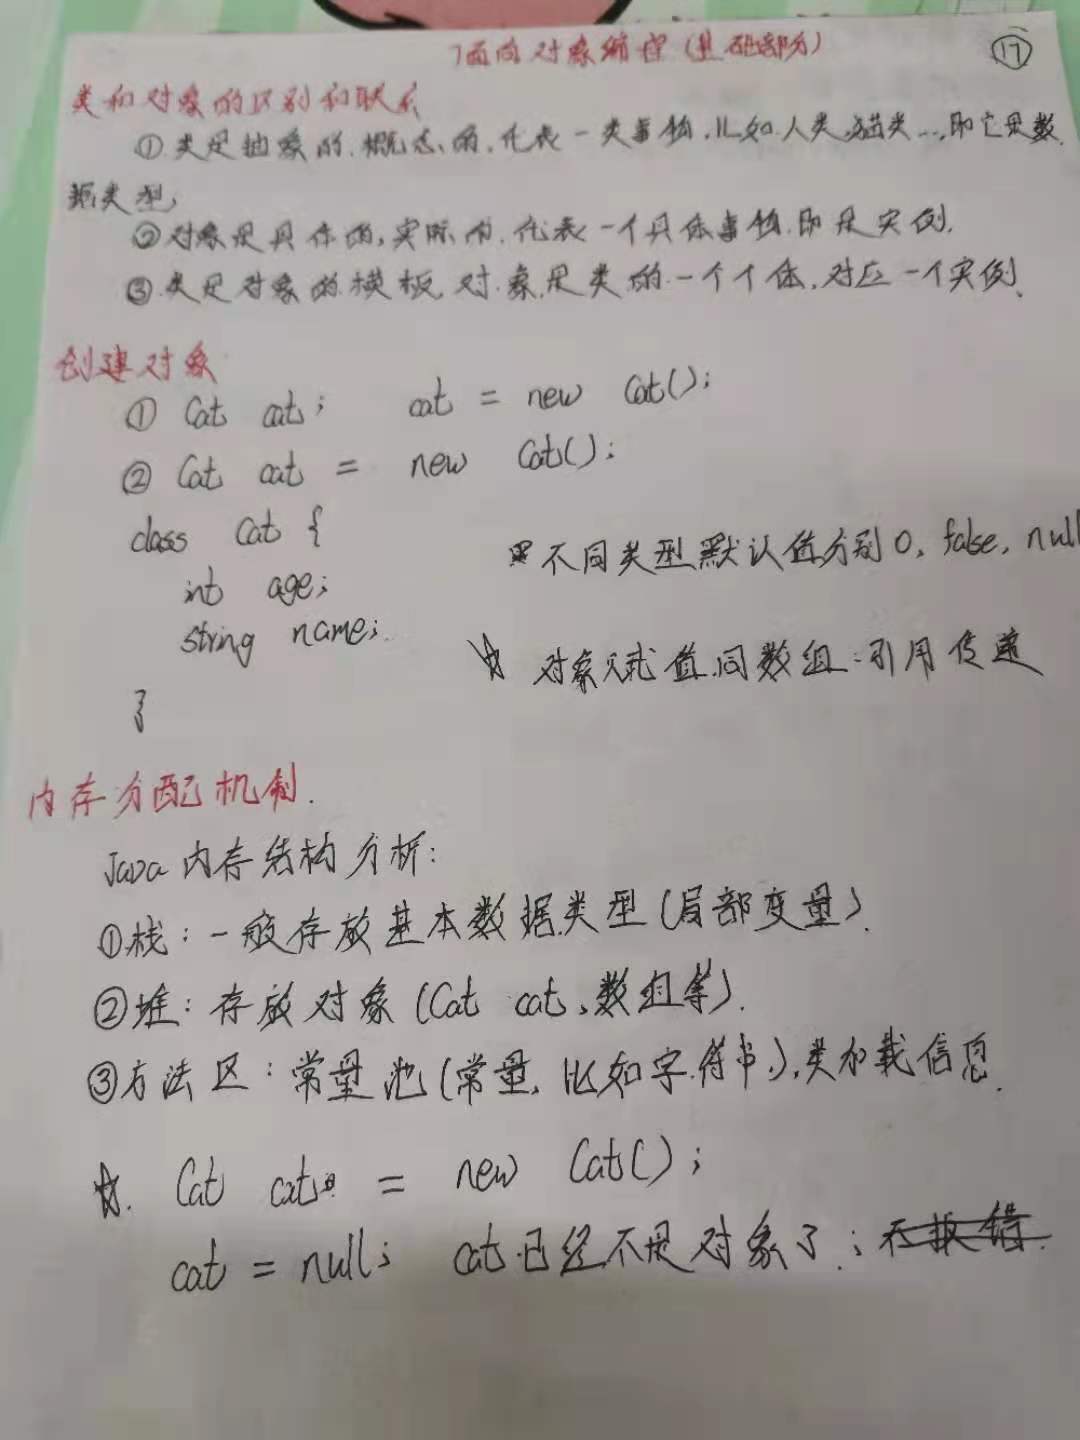 7面向对象编程(基础部分)
⑰
类和对象的区别和联系
①类是抽象的.概念的,代表一类事物,比如人类,猫类...,即它是数
据类型,
②对象是具体的,实际的.代表一个具体事物.即是实例.
③类是对象的模板,对象是类的一个个体,对应一个实例.
创建对象
① Cat cat; cat = new Cat();
② Cat cat = new Cat();
class Cat {
不同类型默认值分别0, false, null
int age;
string name;
☆ 对象赋值.同数组:引用传递
}
内存分配机制.
Java内存结构分析:
①栈:一般存放基本数据类型(局部变量).
②堆:存放对象(Cat cat,数组等).
③方法区:常量池(常量,比如字符串),类加载信息.
☆. Cat cat = new Cat();
cat = null; cat已经不是对象了;不报错.